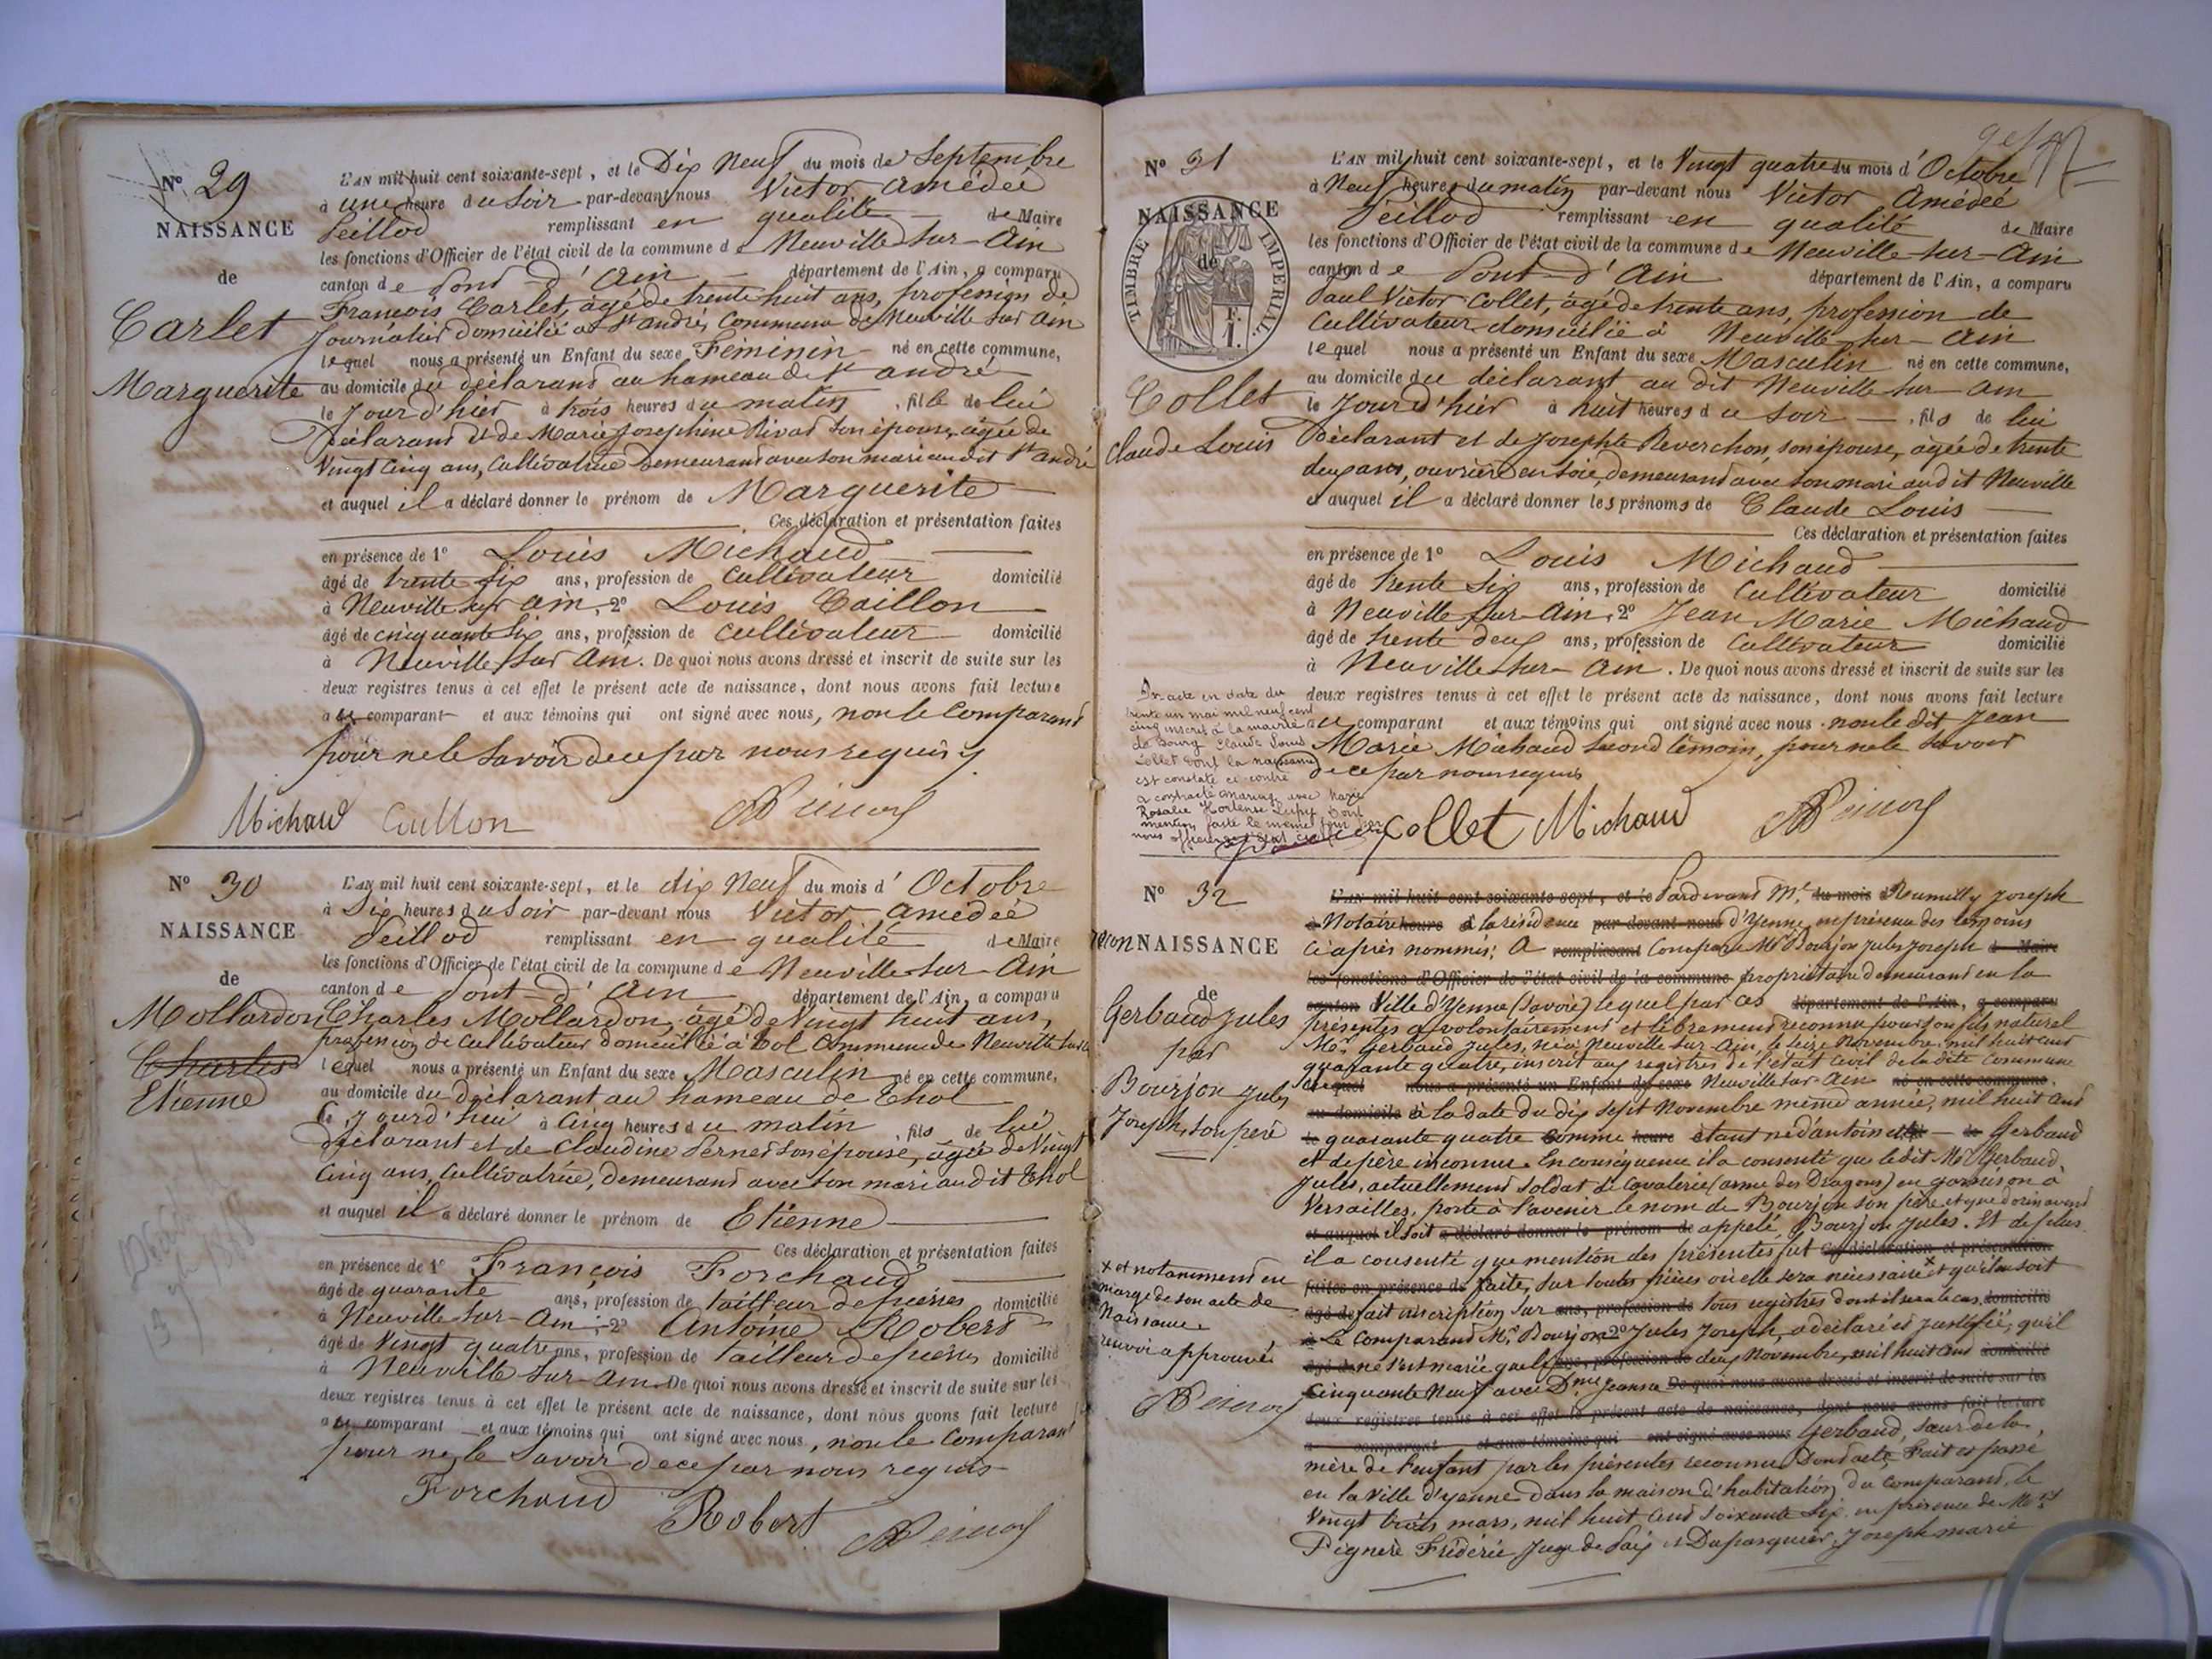 N° 29
NAISSANCE
de
Carlet
Marguerite
L'AN mil huit cent soixante-sept, et le Dix Neuf du mois de Septembre
à une heure du Soir par-devant nous Victor Amédéé
Peillod remplissant en qualité de Maire
les fonctions d'Officier de l'état civil de la commune de Neuville sur-Ain
canton de Pont-d'Ain département de l'Ain, a comparu
François Carlet, âgé de trente huit ans, profession de
Journalier domicilié à St andré, Commune de Neuville sur ain
lequel nous a présenté un Enfant du sexe Féminin né en cette commune,
au domicile du déclarant au hameau de St andré
le Jour d'hier à trois heures du matin, fille de lui
Déclarant et de Marie Josephine Rivat son épouse, agée de
Vingt Cinq ans, Cultivatrice demeurant avec son mari au dit St andré
et auquel il a déclaré donner le prénom de Marguerite
Ces déclaration et présentation faites
en présence de 1° Louis Michaud
âgé de trente six ans, profession de Cultivateur domicilié
à Neuville sur ain, 2° Louis Caillon
âgé de cinquante six ans, profession de cultivateur domicilié
à Neuville sur Ain. De quoi nous avons dressé et inscrit de suite sur les
deux registres tenus à cet effet le présent acte de naissance, dont nous avons fait lecture
au comparant et aux témoins qui ont signé avec nous, non le Comparant
pour ne le Savoir de ce par nous requis
Michaud Caillon
N° 30
NAISSANCE
de
Mollardon
Charles
Etienne
L'AN mil huit cent soixante-sept, et le dix Neuf du mois d'Octobre
à Six heures du Soir par-devant nous Victor Amédéé
Peillod remplissant en qualité de Maire
les fonctions d'Officier de l'état civil de la commune de Neuville sur-Ain
canton de Pont-d'Ain département de l'Ain, a comparu
Charles Mollardon, âgé de Vingt huit ans,
profession de Cultivateur domicilié à Thol Commune de Neuville sur
lequel nous a présenté un Enfant du sexe Masculin né en cette commune,
au domicile du déclarant au hameau de Thol
Ce jourd'hui à Cinq heures du matin, fils de lui
déclarant et de Claudine son épouse, agée de Vingt
Cinq ans, Cultivatrice, demeurant avec son mari au dit Thol
et auquel il a déclaré donner le prénom de Etienne
Ces déclaration et présentation faites
en présence de 1° François Forchaud
âgé de quarante ans, profession de tailleur de pierres domicilié
à Neuville sur-Ain; 2° Antoine Robert
âgé de Vingt quatre ans, profession de tailleur de pierres domicilié
à Neuville sur-ain. De quoi nous avons dressé et inscrit de suite sur les
deux registres tenus à cet effet le présent acte de naissance, dont nous avons fait lecture
au comparant et aux témoins qui ont signé avec nous, non le Comparant
pour ne le Savoir de ce par nous requis
Forchaud Robert
N° 31
NAISSANCE
de
TIMBRE IMPERIAL
F.
1.
Collet
Claude Louis
L'AN mil huit cent soixante-sept, et le Vingt quatre du mois d'Octobre
à Neuf heures du matin par-devant nous Victor Amédéé
Peillod remplissant en qualité de Maire
les fonctions d'Officier de l'état civil de la commune de Neuville-sur-Ain
canton de Pont-d'Ain département de l'Ain, a comparu
Paul Victor Collet, âgé de trente ans, profession de
Cultivateur domicilié à Neuville-sur-Ain
lequel nous a présenté un Enfant du sexe Masculin né en cette commune,
au domicile du déclarant au dit Neuville sur-ain
le Jour d'hier à huit heures du Soir, fils de lui
Déclarant et de Josephte Reverchon, son épouse, agée de trente
deux ans, ouvrière en soie, demeurant avec son mari au dit Neuville
et auquel il a déclaré donner les prénoms de Claude Louis
Ces déclaration et présentation faites
en présence de 1° Louis Michaud
âgé de trente six ans, profession de Cultivateur domicilié
à Neuville, sur-Ain, 2° Jean Marie Michaud
âgé de trente deux ans, profession de Cultivateur domicilié
à Neuville-sur-Ain. De quoi nous avons dressé et inscrit de suite sur les
deux registres tenus à cet effet le présent acte de naissance, dont nous avons fait lecture
au comparant et aux témoins qui ont signé avec nous non le dit Jean
Marie Michaud second témoin, pour ne le savoir
de ce par nous requis
Par acte en date du
trente un mai mil neuf cent
cinq inscrit à la mairie
de Bourg Claude Louis
Collet dont la naissance
est constatée ci-contre
a contracté mariage avec Marie
Rosalie Hortense Dont
mention faite le même jour par
nous officier de l'état civil
Collet Michaud
N° 32
NAISSANCE
de
Gerbaud Jules
par
Bourjon Jules
Joseph, son père
L'AN mil huit cent soixante-sept, et le Pardevant Me du mois Rumilly Joseph
à Notaire heure à la résidence par-devant nous d'Yenne, en présence des témoins
Ci après nommés; A remplissant Comparu Mr Bourjon Jules Joseph de Maire
les fonctions d'Officier de l'état civil de la commune propriétaire demeurant en la
canton Ville d'Yenne (Savoie) lequel par ces département de l'Ain, a comparu
présentes a volontairement et librement reconnu pour son fils naturel
Mr Gerbaud Jules, né à Neuville sur-Ain, le seize Novembre, mil huit cent
quarante quatre, inscrit aux registres de l'état civil de la dite Commune
lequel nous a présenté un Enfant du sexe Neuville sur Ain né en cette commune,
au domicile à la date du dix sept Novembre même année, mil huit cent
le quarante quatre Comme heure étant né d'antoinette de Gerbaud
et de père inconnu. En conséquence il a consenti que le dit Mr Gerbaud
Jules, actuellement Soldat de Cavalerie (arme des Dragons) en garnison à
Versailles, porte à l'avenir le nom de Bourjon son père et que dorénavant
et auquel il soit a déclaré donner le prénom de appelé Bourjon Jules. Et de plus
il a consenti que mention des présentes fut Ces déclaration et présentation
faites en présence de faite, sur toutes pièces où elle sera nécessaire + et qu'il en soit
âgé de fait inscription sur ans, profession de tous registres dont il sera le cas, domicilié
à Le Comparant Mr Bourjon 2° Jules Joseph, a déclaré et justifié, qu'il
âgé de ne s'est marié que le ans, profession de deux Novembre, mil huit cent domicilié
Cinquante Neuf avec Dme Jeanne De quoi nous avons dressé et inscrit de suite sur les
deux registres tenus à cet effet le présent acte de naissance, dont nous avons fait lecture
a comparant et aux témoins qui ont signé avec nous Gerbaud, sœur de la
mère de l'enfant par les présentes reconnu Dont acte Fait et passé
en la Ville d'yenne dans la maison d'habitation du comparant, le
Vingt trois mars, mil huit cent soixante six en présence de Mrs
Frédéric Juge de Paix et Dupasquier, Joseph marie
+ et notamment en
marge de son acte de
Naissance
renvoi approuvé